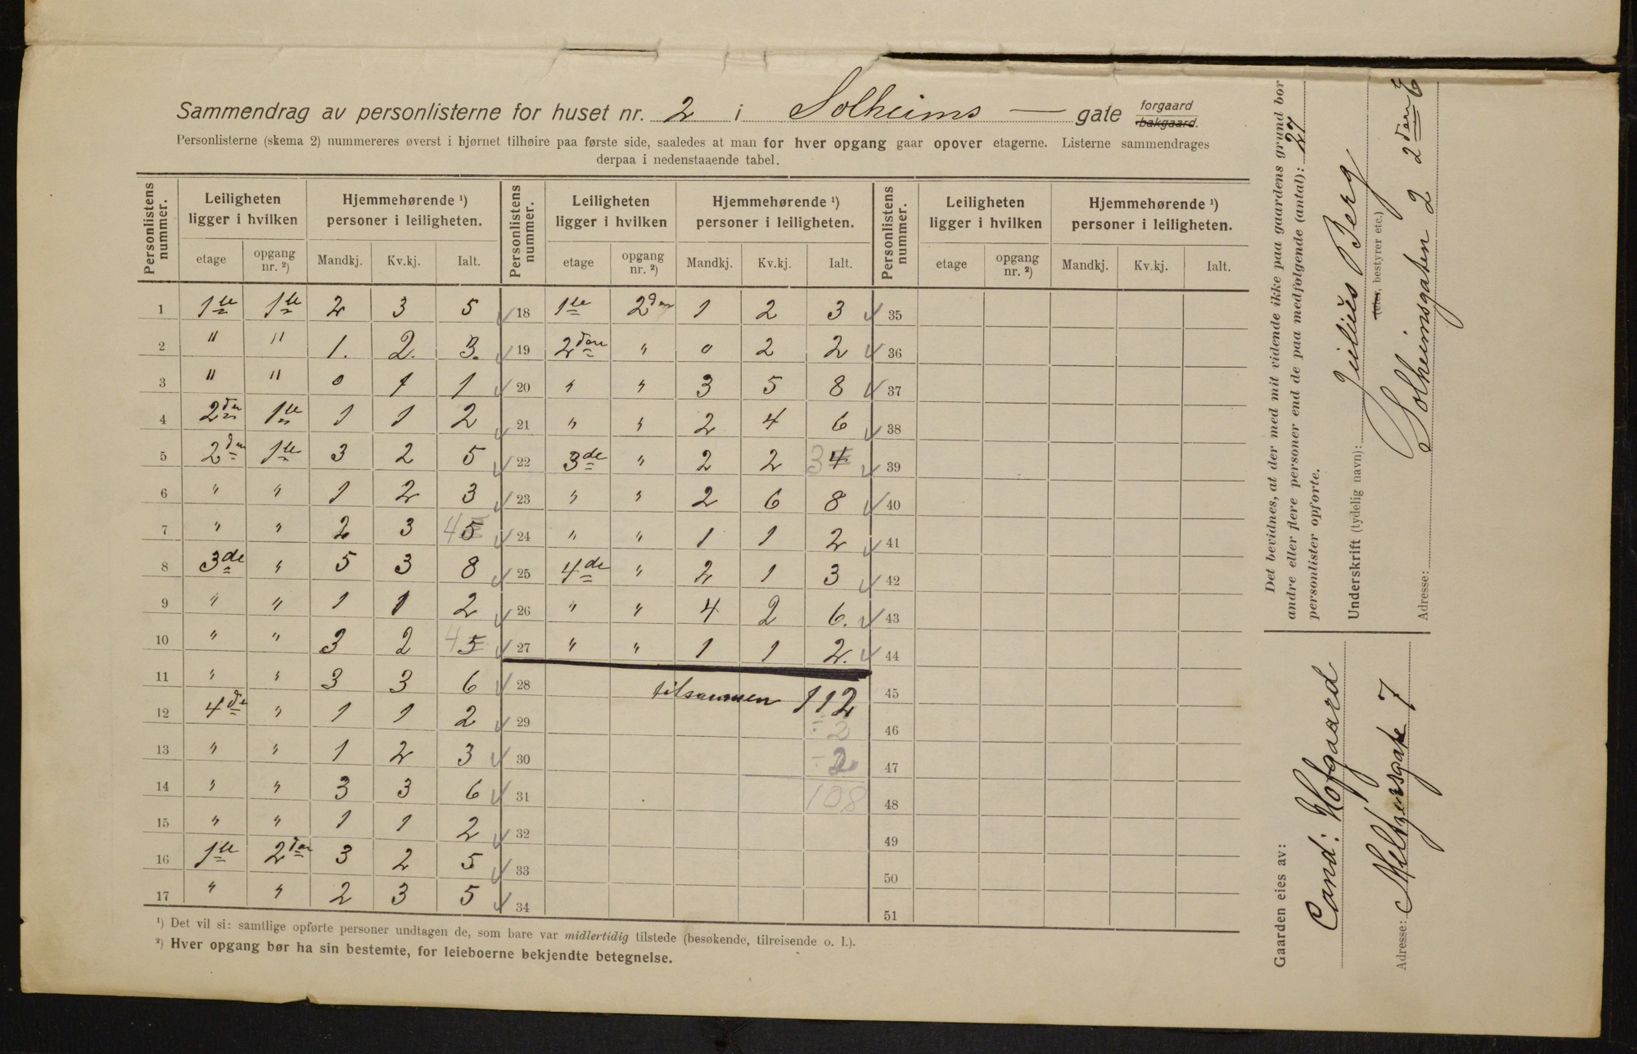 Sammendrag av personlisterne for huset nr. 2 i Solheims — gate forgaard bakgaard.
Personlisterne (skema 2) nummereres øverst i hjørnet tilhøire paa første side, saaledes at man for hver opgang gaar opover etagerne. Listerne sammendrages
derpaa i nedenstaaende tabel.
Personlistens nummer. Leiligheten ligger i hvilken Hjemmehørende ¹) personer i leiligheten. Personlistens nummer. Leiligheten ligger i hvilken Hjemmehørende ¹) personer i leiligheten. Personlistens nummer. Leiligheten ligger i hvilken Hjemmehørende ¹) personer i leiligheten.
etage opgang nr. ²) Mandkj. Kv.kj. Ialt. etage opgang nr. ²) Mandkj. Kv.kj. Ialt. etage opgang nr. ²) Mandkj. Kv.kj. Ialt.
1 1ste 1ste 2 3 5 ✓ 18 1ste 2den 1 2 3 ✓ 35
2 " " 1. 2. 3. ✓ 19 2den " 0 2 2 ✓ 36
3 " " 0 1 1 ✓ 20 " " 3 5 8 ✓ 37
4 2den 1ste 1 1 2 ✓ 21 " " 2 4 6 ✓ 38
5 2den 1ste 3 2 5 ✓ 22 3de " 2 2 3 4 ✓ 39
6 " " 1 2 3 ✓ 23 " " 2 6 8 ✓ 40
7 " " 2 3 4 5 ✓ 24 " " 1 1 2 ✓ 41
8 3de " 5 3 8 ✓ 25 4de " 2 1 3 ✓ 42
9 " " 1 1 2 ✓ 26 " " 4 2 6. ✓ 43
10 " " 3 2 4 5 ✓ 27 " " 1 1 2. ✓ 44
11 " " 3 3 6 ✓ 28 tilsammen 112 45
12 4de " 1 1 2 ✓ 29 ÷ 2 46
13 " " 1 2 3 ✓ 30 ÷ 2 47
14 " " 3 3 6 ✓ 31 108 48
15 " " 1 1 2 ✓ 32 49
16 1ste 2den 3 2 5 ✓ 33 50
17 " " 2 3 5 ✓ 34 51
¹) Det vil si: samtlige opførte personer undtagen de, som bare var midlertidig tilstede (besøkende, tilreisende o. l.).
²) Hver opgang bør ha sin bestemte, for leieboerne bekjendte betegnelse.
Det bevidnes, at der med mit vidende ikke paa gaardens grund bor
andre eller flere personer end de paa medfølgende (antal): 27
personlister opførte.
Underskrift (tydelig navn): Julius Berg
(eier, bestyrer etc.)
Adresse: Solheimsgaten 2 2den E
Gaarden eies av: Cand: Hofgaard
Adresse: Meltzersgate 7